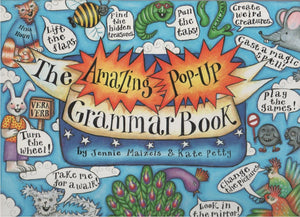 Lift
the
flaps
Find
the
hidden
treasures
Pull
the
tabs!
Create
weird
creatures
Cast a magic
spell!
The
Amazing
Pop-Up
Grammar Book
play
the
games!
VERA
VERB
Turn
the
wheel!
by Jennie Maizels & Kate Petty
Take me
for a walk!
Change
the pictures
Look in
the mirror!